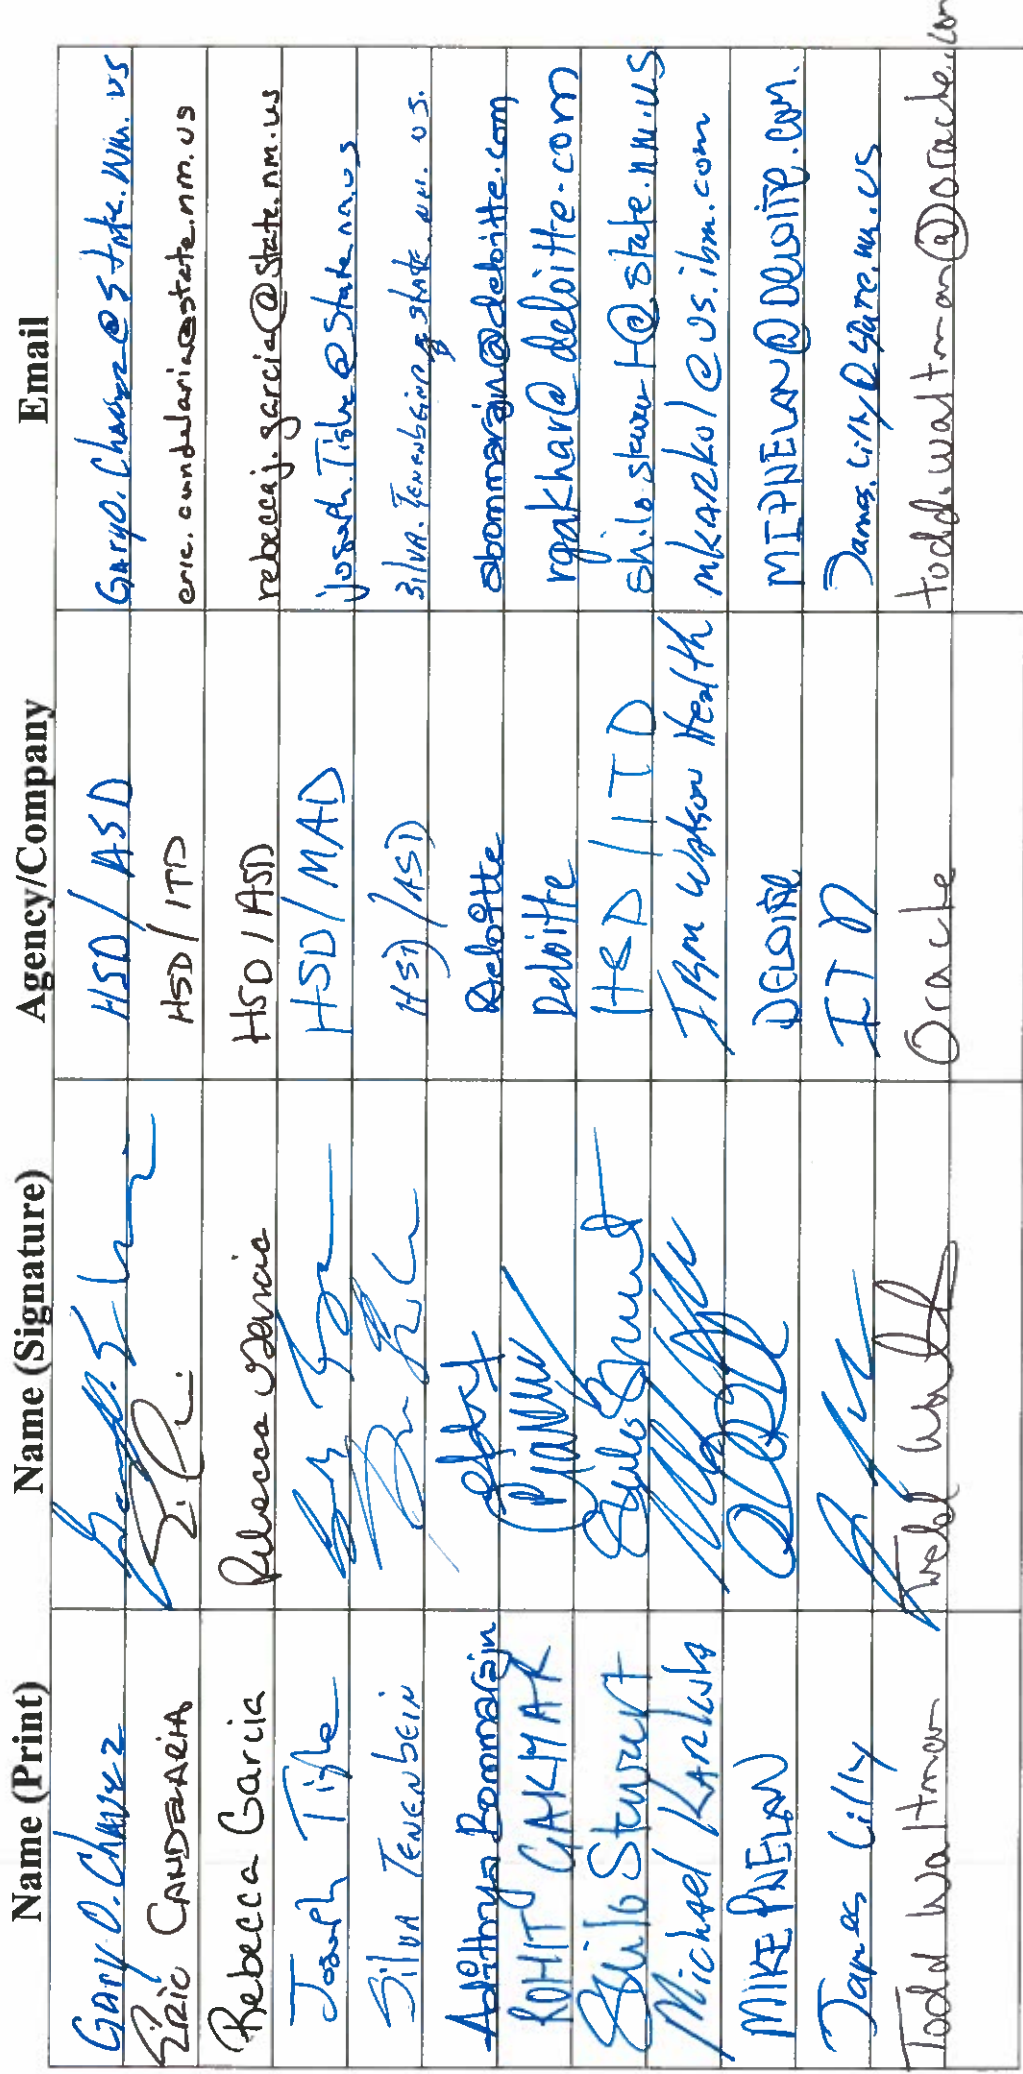 Name (Print) Name (Signature) Agency/Company Email
Gary O. Chavez HSD/ASD GaryO.Chavez@state.nm.us
Eric CANDELARIA HSD/ITD eric.candelaria@state.nm.us
Rebecca Garcia Rebecca Garcia HSD/ASD rebeccaj.garcia@state.nm.us
Joseph Tighe HSD/MAD joseph.Tighe@state.nm.us
Silva Tenenbein HSD/ASD Silva.Tenenbein@state.nm.us.
Adithya Bommasjn Deloitte abommarajn@deloitte.com
ROHIT GAKHAR Deloitte rgakhar@deloitte.com
Shilo Stewart Shilo Stewart HSD/ITD shilo.stewart@state.nm.us
Michael IBM Watson Health mkarkol@us.ibm.com
MIKE PHELAN DELOITTE MIPHELAN@DELOITTE.COM.
James Lilly ITD James.Lilly@state.nm.us
Todd Waltman Todd Oracle todd.waltman@oracle.com